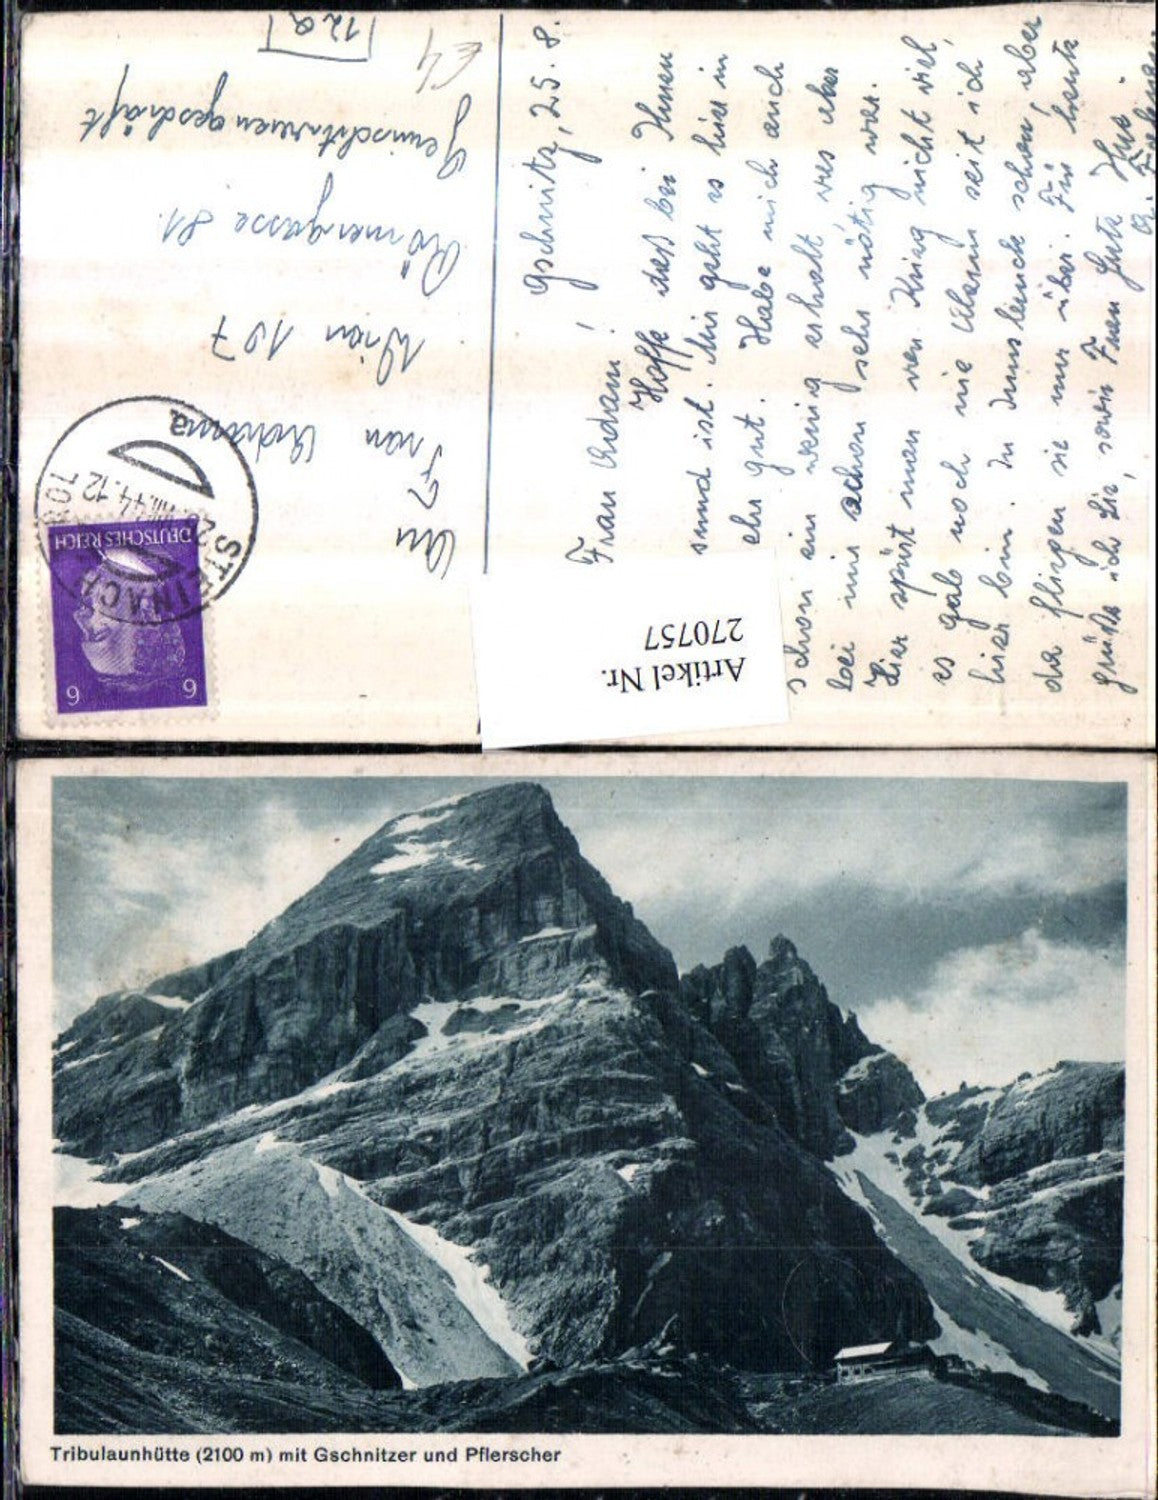 12a
Gemischtwarengeschäft
Römergasse 81.
Wien 107
Frau Adama
An
STEINACH
VIII.44.12
a
DEUTSCHES REICH
6 6
Gschnitz, 25. 8.
Frau Adam!
Hoffe dass bei Ihnen
sund ist. Mir geht es hier in
sehr gut. Habe mich auch
schon ein wenig erholt, was aber
bei mir schon sehr nötig war.
Hier spürt man von Krieg nicht viel,
es gab noch nie Alarm seit ich
hier bin. In Innsbruck schon, aber
da fliegen sie nur über. Für heute
grüße ich Sie, sowie Frau Gretl
Artikel Nr.
270757
Tribulaunhütte (2100 m) mit Gschnitzer und Pflerscher